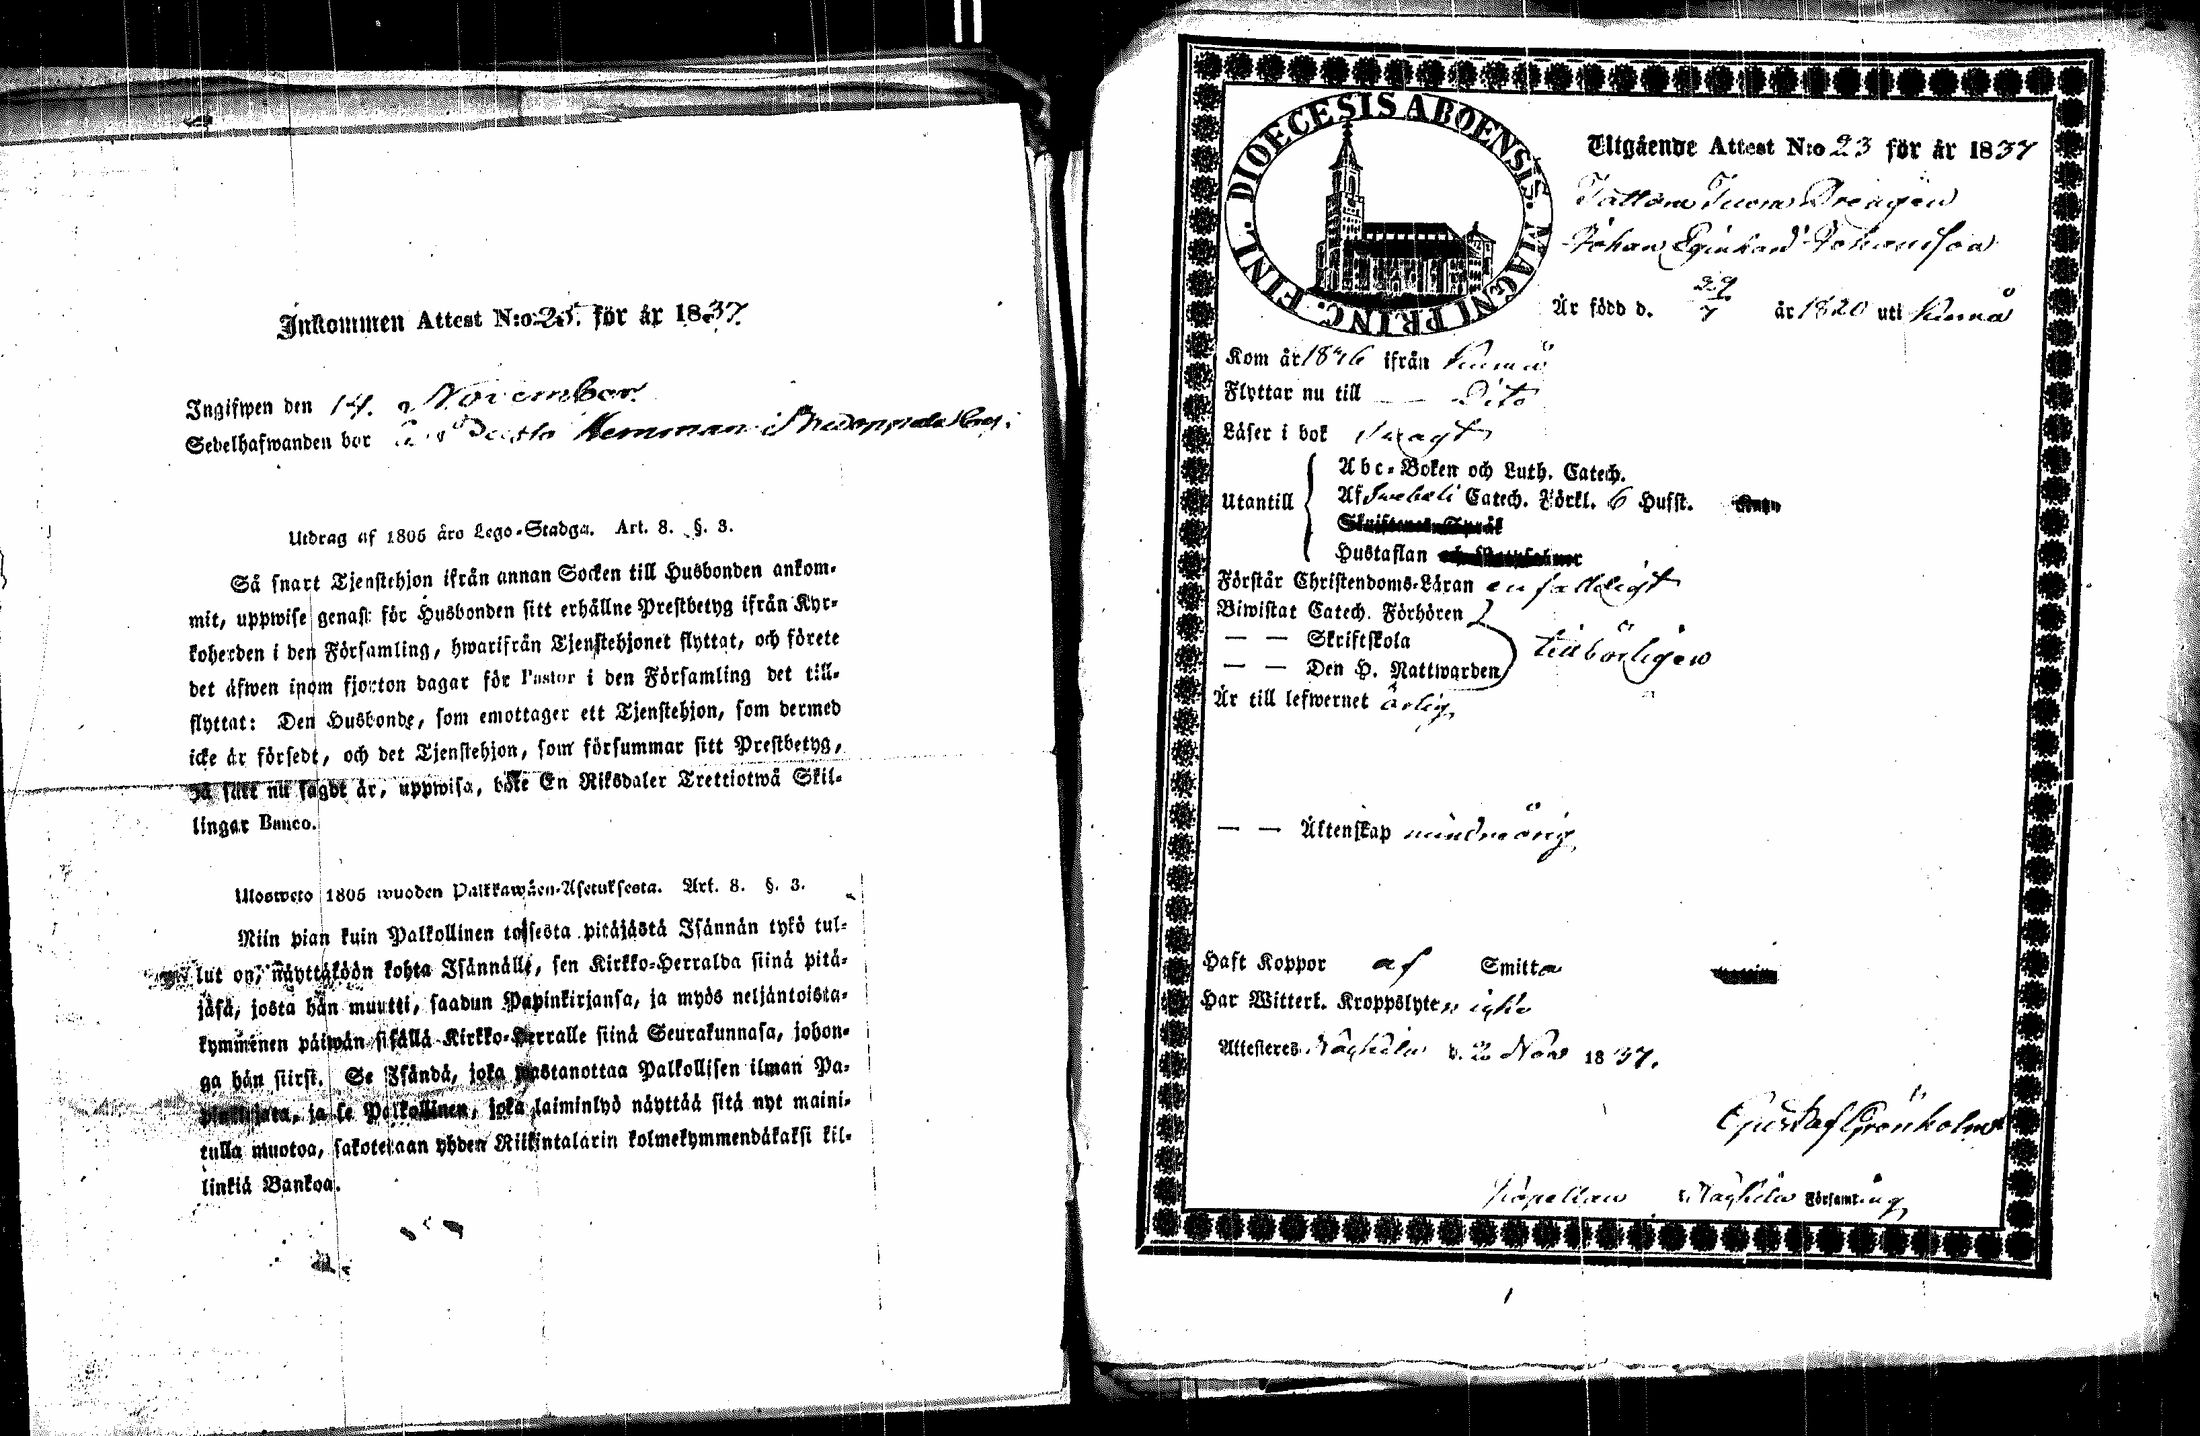 Inkommen Attest N:o 25. för år 1837.
Ingifwen den 14. November.
Sedelhafwanden bor Hemman i
Utdrag af 1805 års Lego-Stadga. Art. 8. §. 3.
Så snart Tjenstehjon ifrån annan Socken till Husbonden ankom-
mit, uppwise genast för Husbonden sitt erhållne Prestbetyg ifrån Kyr-
koherden i den Församling, hwarifrån Tjenstehjonet flyttat, och förete
det äfwen inom fjorton dagar för Pastor i den Församling det till-
flyttat: Den Husbonde, som emottager ett Tjenstehjon, som dermed
icke är försedt, och det Tjenstehjon, som försummar sitt Prestbetyg,
på sätt nu sagdt är, uppwisa, böte En Riksdaler Trettiotwå Skil-
lingar Banco.
Ulosweto 1805 wuoden Palkkawäen-Asetuksesta. Art. 8. §. 3.
Niin pian kuin Palkollinen toisesta pitäjästä Isännän tykö tul-
lut on, näyttäköön kohta Isännälle, sen Kirkko-Herralda siinä pitä-
jäsä, josta hän muutti, saadun Papinkirjansa, ja myös neljäntoista-
kymmenen päiwän sisällä Kirkko-Herralle siinä Seurakunnasa, johon-
ga hän siirsi. Se Isändä, joka wastanottaa Palkollisen ilman Pa-
pinkirjata, ja se Palkollinen, joka laiminlyö näyttää sitä nyt maini-
tulla muotoa, sakotetaan yhden Riikintalarin kolmekymmendäkaksi kil-
linkiä Bankoa.
FINL. DIOECESIS ABOENSIS. MAGNI PRINC.
Utgående Attest N:o 23 för år 1837
Drängen
Johan Johansson
Är född d. 29/7 år 1820 uti Kumå
Kom år 1836 ifrån Kumå
Flyttar nu till — — Dito
Läser i bok swagt
Utantill
Abc-Boken och Luth. Catech.
Af Swebeli Catech. Förkl. 6 Hufst.
Skriftenes Språk
Hustaflan
Förstår Christendoms-Läran enfaldigt
Biwistat Catech. Förhören
— — Skriftskola
— — Den H. Nattwarden
tillbörligen
Är till lefwernet ärlig
— — Äktenskap minderårig
Haft Koppor af Smitta
Har Witterl. Kroppslyten icke
Attesteres Nagu d. 2 Nov 1837.
Gustaf Grönholm
Kapellan Församling